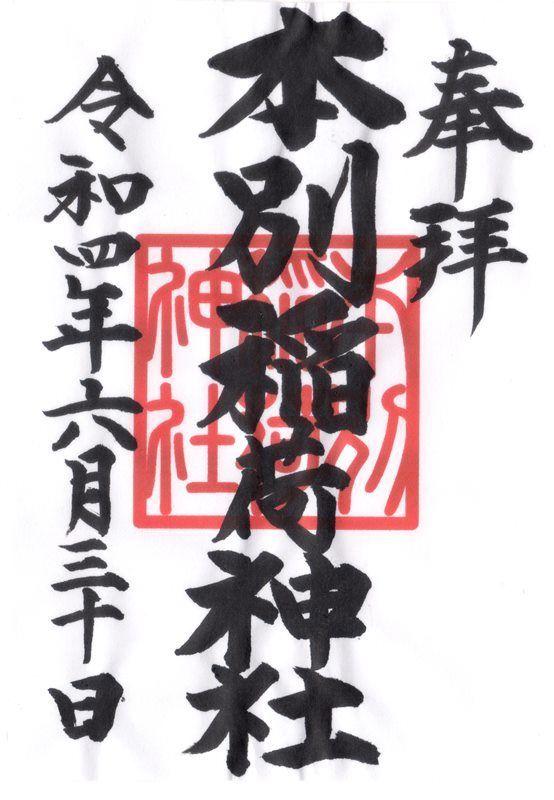 奉拝
本別稲荷神社
令和四年六月三十日
本別
稲荷
神社